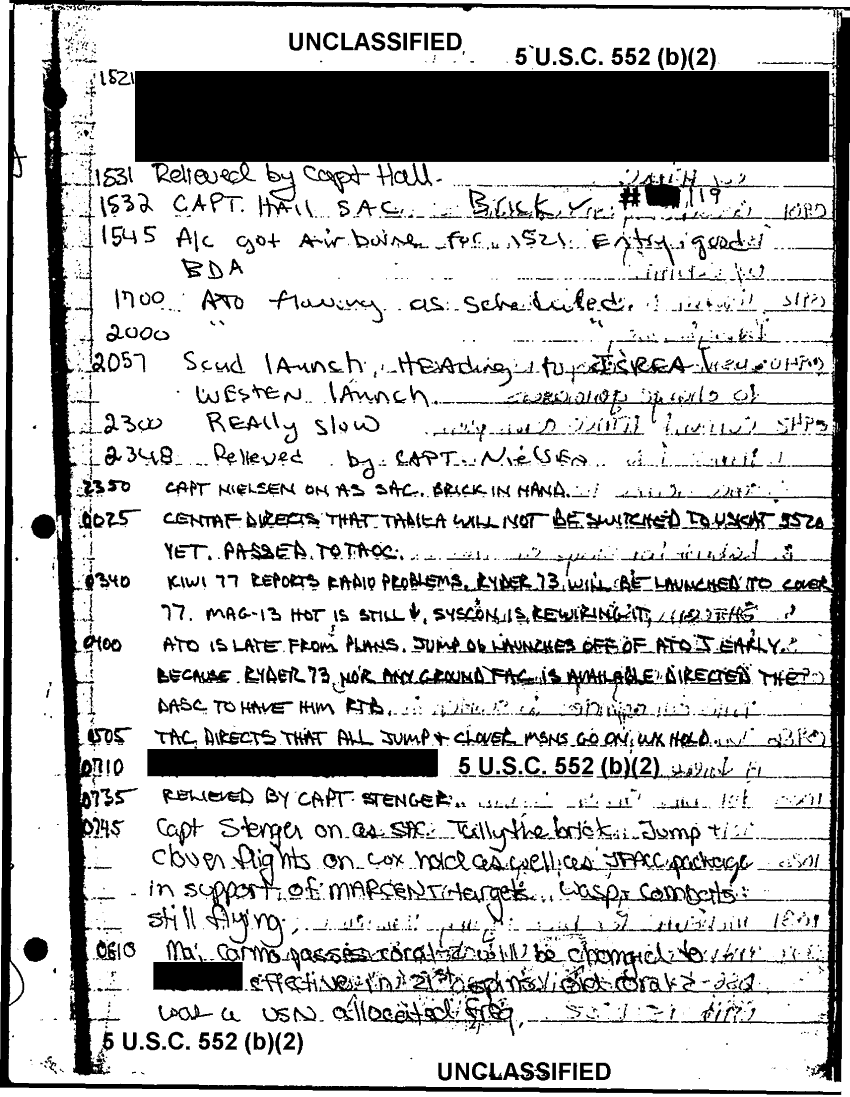 UNCLASSIFIED
5 U.S.C. 552 (b)(2)
1521
1531 Relieved by Capt Hall.
1532 CAPT. HAll SAC. Brick # 119
1545 A/c got Airborne for 1521 Entry, good
BDA
1700 ATO flowing as scheduled.
2000 " "
2057 Scud lAunch, HEAding to ISREAl
WESTEN lAunch
2300 REAlly slow
2348 Relieved by CAPT. NielSEN
2350 CAPT NIELSEN ON AS SAC. BRICK IN HAND.
0025 CENTAF DIRECTS THAT WILL NOT BE SWITCHED TO
YET. PASSED TO TAOC.
0340 KIWI 77 REPORTS RADIO PROBLEMS. RYDER 73 WILL BE LAUNCHED TO COVER
77. MAG-13 HOT IS STILL ↓, SYSCON IS REWIRING IT.
0400 ATO IS LATE FROM PLANS. JUMP 06 LAUNCHES OFF OF ATO I EARLY.
BECAUSE RYDER 73 NOR ANY GROUND FAC IS AVAILABLE DIRECTED THE
DASC TO HAVE HIM RTB.
0505 TAC DIRECTS THAT ALL JUMP + CLOVER MSNS GO ON WX HOLD.
0710 5 U.S.C. 552 (b)(2)
0735 RELIEVED BY CAPT. STENGER.
0745 Capt Stenger on as SAC. Tally the brick. Jump +
clover flights on wx hold as well as JFACC package
in support of MARCENT targets. Wasp + Combats
still flying.
0810 Maj Carmo passes coral 2 will be changed to
effective old coral 2
was a USN allocated freq.
5 U.S.C. 552 (b)(2)
UNCLASSIFIED